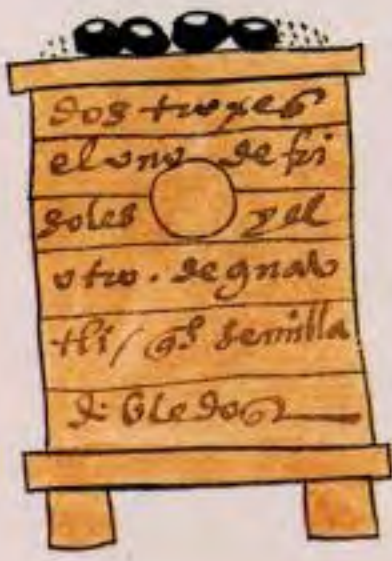 dos troxes
el uno de fri
soles y el
otro. de guav
tli / qs semilla
de bledos